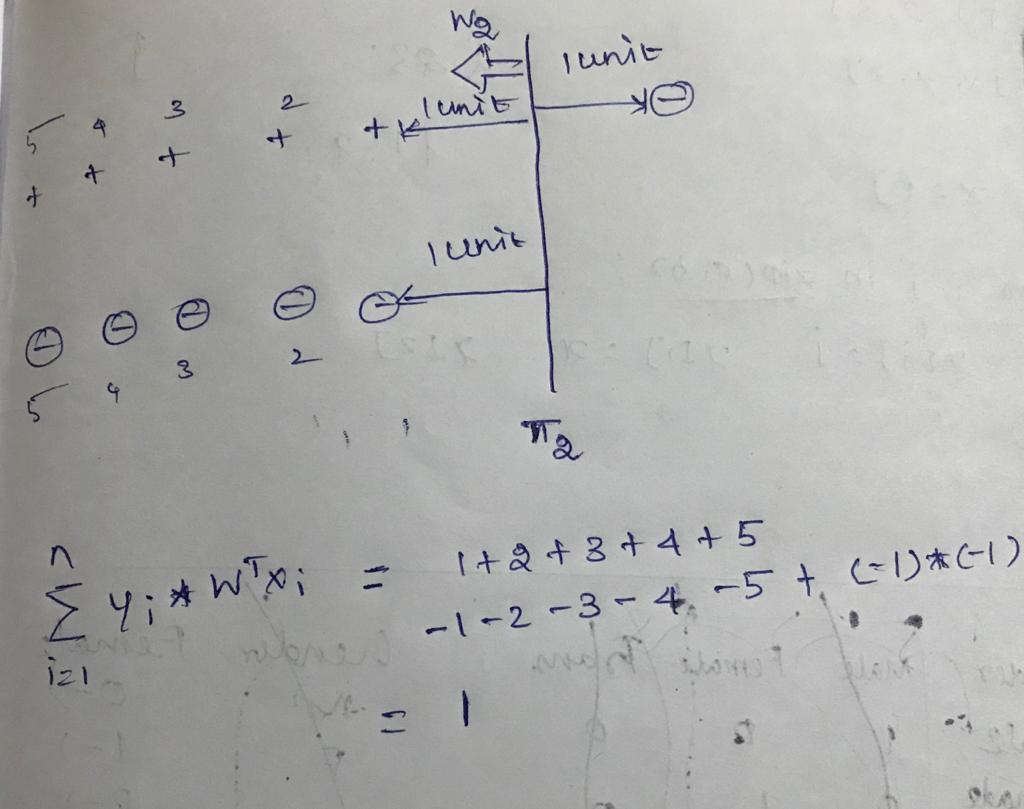 W2
1 unit
5 4 3 2 1 unit
+ + + + +
⊖
1 unit
⊖ ⊖ ⊖ ⊖ ⊖
5 4 3 2
π2
n
∑ yi * WTxi = 1+2+3+4+5
i=1
-1-2-3-4-5 + (-1)*(-1)
= 1